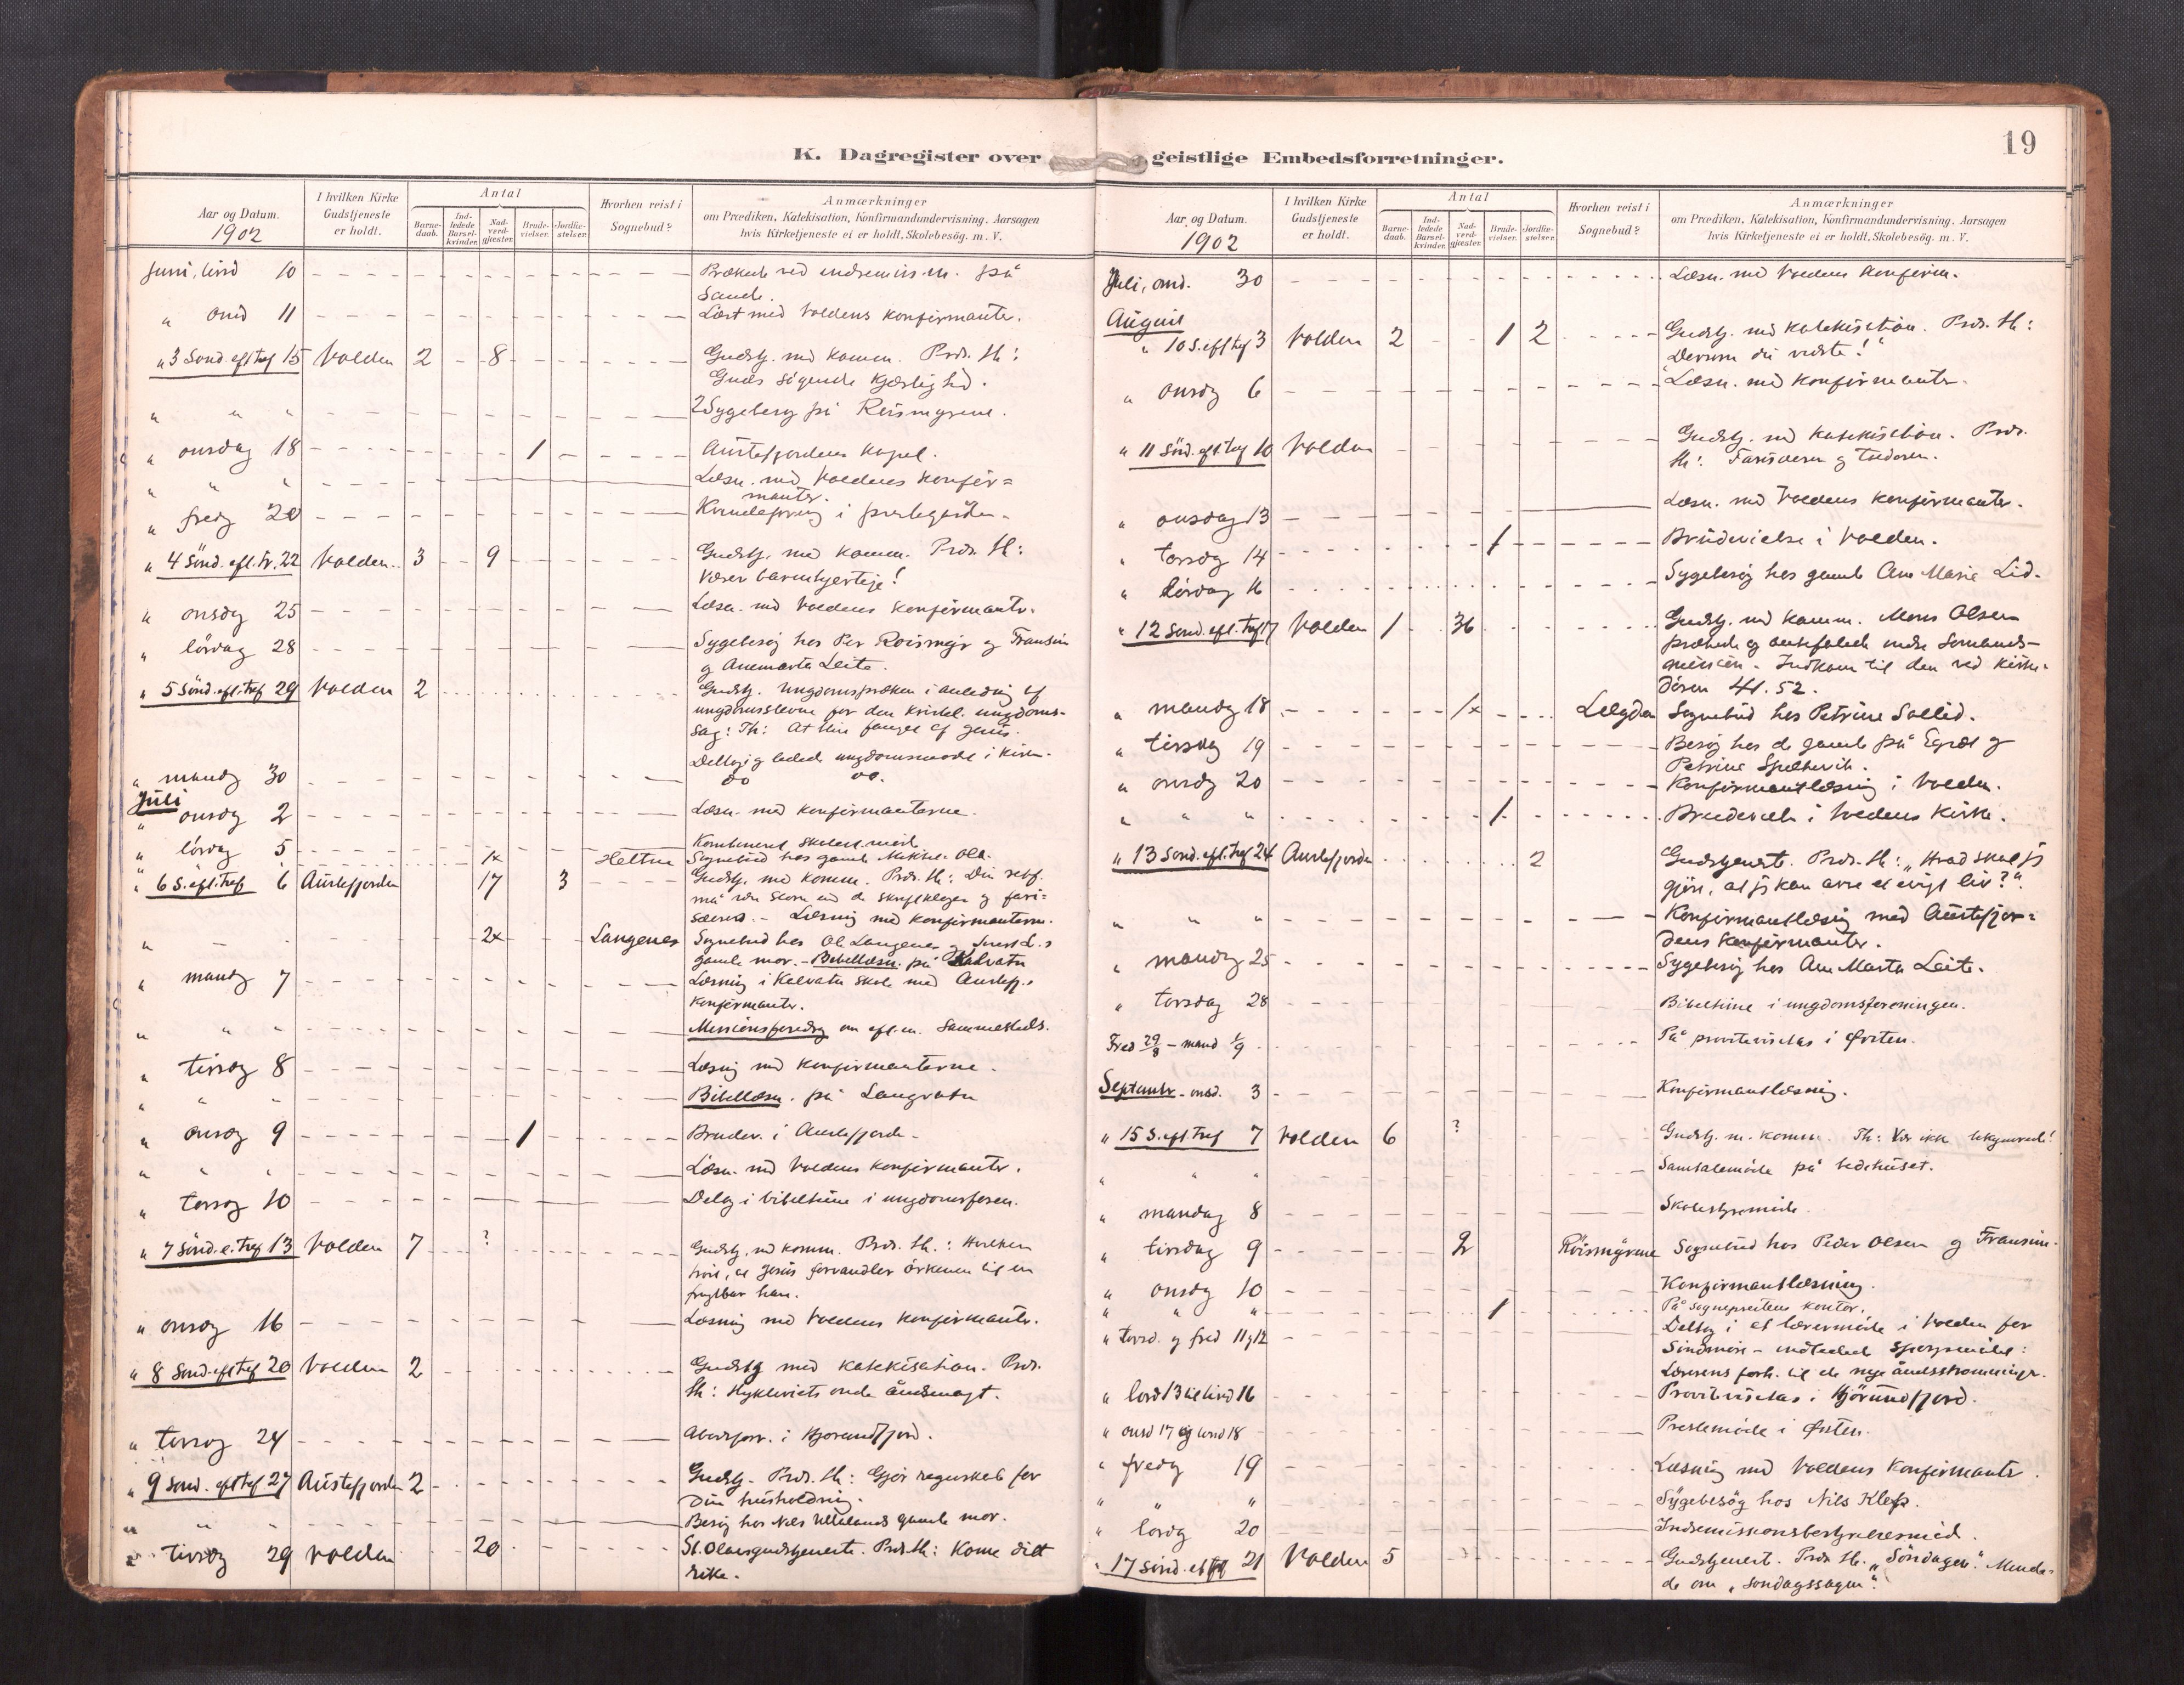 K. Dagregister over
Aar og Datum.
1902
I hvilken Kirke Gudstjeneste er holdt.
Antal
Barne-daab.
Ind-ledede Barsel-kvinder.
Nad-verd-gjæster.
Brude-vielser.
Jordfæ-stelser.
Hvorhen reist i Sognebud?
Anmærkninger
om Prædiken, Katekisation, Konfirmandundervisning. Aarsagen
hvis Kirketjeneste ei er holdt, Skolebesög. m. V.
Juni, tirsd 10 på
Sande.
" onsd 11 Læst med Voldens konfirmanter.
" 3 Sönd. eft. tref 15 Volden 2 8 Gudstj. med komm. Præd. th:
Guds sögende kjærlighed.
" " " 2 Sygebesög på Röismyrene.
" onsdag 18 1 Austefjordens kapel.
" " " Læsn. med Voldens konfir=
manter.
" fredg 20 Kvindeforening i prestegården.
" 4 Sönd. eft. tr. 22 Volden 3 9 Gudstj. med komm. Præd. th:
Værer barmhjertige!
" onsdg 25 Læsn. med Voldens konfirmanter.
" lördag 28 Sygebesög hos Per Röismyr og Fransine
og Anemarta Leite.
" 5 Sönd. eft. tref 29 Volden 2 Gudstj. Ungdomspræken i anledning af
ungdomsstevne for den kristel. ungdoms-
sag: Th: At blive fanget af Jesus.
Deltog i og ledede ungdomsmøde i kirken.
" mandg 30 do do.
Juli
" onsdg 2 Læsn. med konfirmanterne.
" lördag 5 Kombineret skolest. möde
1x Heltne Sognebud hos gamle Mekkel-Ola.
" 6 S. eft. tref 6 Austefjorden 17 3 Gudstj. med komm. Præd. th: Din retf.
må være större end de skriftkloges og fari=
sæeres. - Læsning med konfirmanterne.
" - - 2x Langenes Sognebud hos Ole Langenes og
gamle mor. - Bibellæsn. på Kalvatn
" mandg 7 Læsning i Kalvatn skole med Austefj.s
konfirmanter.
" " " Missionsforedrag om eft. m. sammesteds.
" tirsdg 8 Læsning med konfirmanterne.
" " " Bibellæsn. på Langvatn
" onsdg 9 1 Brudev. i Austefjorden.
" " " Læsn. med Voldens konfirmanter.
" torsdg 10 Deltog i bibeltime i ungdomsforen.
" 7 Sönd. e. tref 13 Volden 7 ? Gudstj. med komm. Præd. th.: Hvilken
tröst, at Jesus forvandler örkenen til en
frugtbar have.
" onsdg 16 Læsning med Voldens konfirmanter.
" 8 Sönd. eft tref 20 Volden 2 Gudstj med katekisation. Præd.
th: Hykleriets onde åndsmagt.
" torsdg 24 i Hjörundfjord.
" 9 Sönd. eft tref 27 Austefjorden 2 Gudstj. Præd. th: Gjör regnskab for
din husholdning.
" " " Besög hos Nils Ulvelands gamle mor.
" tirsdg 29 Volden 20 St. Olavsgudstjeneste. Præd. th: Kome ditt
rike.
geistlige Embedsforretninger.
19
Aar og Datum.
1902
I hvilken Kirke Gudstjeneste er holdt.
Antal
Barne-daab.
Ind-ledede Barsel-kvinder.
Nad-verd-gjæster.
Brude-vielser.
Jordfæ-stelser.
Hvorhen reist i Sognebud?
Anmærkninger
om Prædiken, Katekisation, Konfirmandundervisning. Aarsagen
hvis Kirketjeneste ei er holdt, Skolebesög. m. V.
Juli, ond. 30 Læsn. med Voldens konfirm.
August
" 10 S. eft tref 3 Volden 2 1 2 Gudstj. med katekisation. Præd. th:
"Dersom du vidste!"
" onsdg 6 Læsn. med konfirmanter.
" 11 Sönd. eft. tref 10 Volden Gudstj. med katekisation. Præd.
th: Farisæeren og tolderen.
" onsdag 13 Læsn. med Voldens konfirmanter.
" torsdg 14 1 Brudevielse i Volden.
" lördag 16 Sygebesög hos gamle Ane Marie Lid.
" 12 Sönd. eft. tref 17 Volden 1 36 Gudstj. med komm. Mons Olsen
prækede og anbefalede indre Sömands-
mission. Indkom til den ved kirke-
dören 41.52.
" mandg 18 1x Lægden Sognebud hos Petrine Sollid.
" tirsdg 19 Besög hos de gamle på Egset og
Petrine
" onsdg 20 Konfirmantlæsning i Volden.
" " " 1 Brudevielse i Voldens kirke.
" 13 Sönd. eft. tref 24 Austefjorden 2 Gudstjeneste. Præd. th: "Hvad skal jeg
gjöre, at jeg kan arve et evigt liv?".
" " " Konfirmantlæsning med Austefjor=
dens konfirmanter.
" mandg 25 Sygebesög hos Ane Marta Leite.
" torsdag 28 Bibeltime i ungdomsforeningen.
Fred 29/8 - mand 1/9 På provstevisitas i Örsten.
September - onsd. 3 Konfirmantlæsning.
" 15 S. eft. tref 7 Volden 6 ? Gudstj. m. komm. Th: Vær ikke bekymrede!
" " " Samtalemöde på bedehuset.
" mandag 8 Skolestyremöde.
" tirsdag 9 2 Röismyrene Sognebud hos Peder Olsen og Fransine.
" onsdg 10 Konfirmantlæsning.
" " " 1 På sogneprestens kontor.
" torsd. og fred 11 og 12 Deltog i et lærermöde i Volden for
Söndmöre - indledede spörsmålet:
Lærerens forh. til de nye åndsströmninger.
" lörd 13 til tirsd 16 Provstevisitas i Hjörundfjord.
" onsd 17 og torsd 18 Prestemöde i Örsten.
" fredg 19 Læsning med Voldens konfirmanter.
" " " Sygebesög hos Nils Klep.
" lördg 20 Indremissionsbestyrelsesmöd.
" 17 Sönd. eft tref 21 Volden 5 Gudstjenest. Præd. th. "Söndagen". Minde-
de om "söndagssagen".